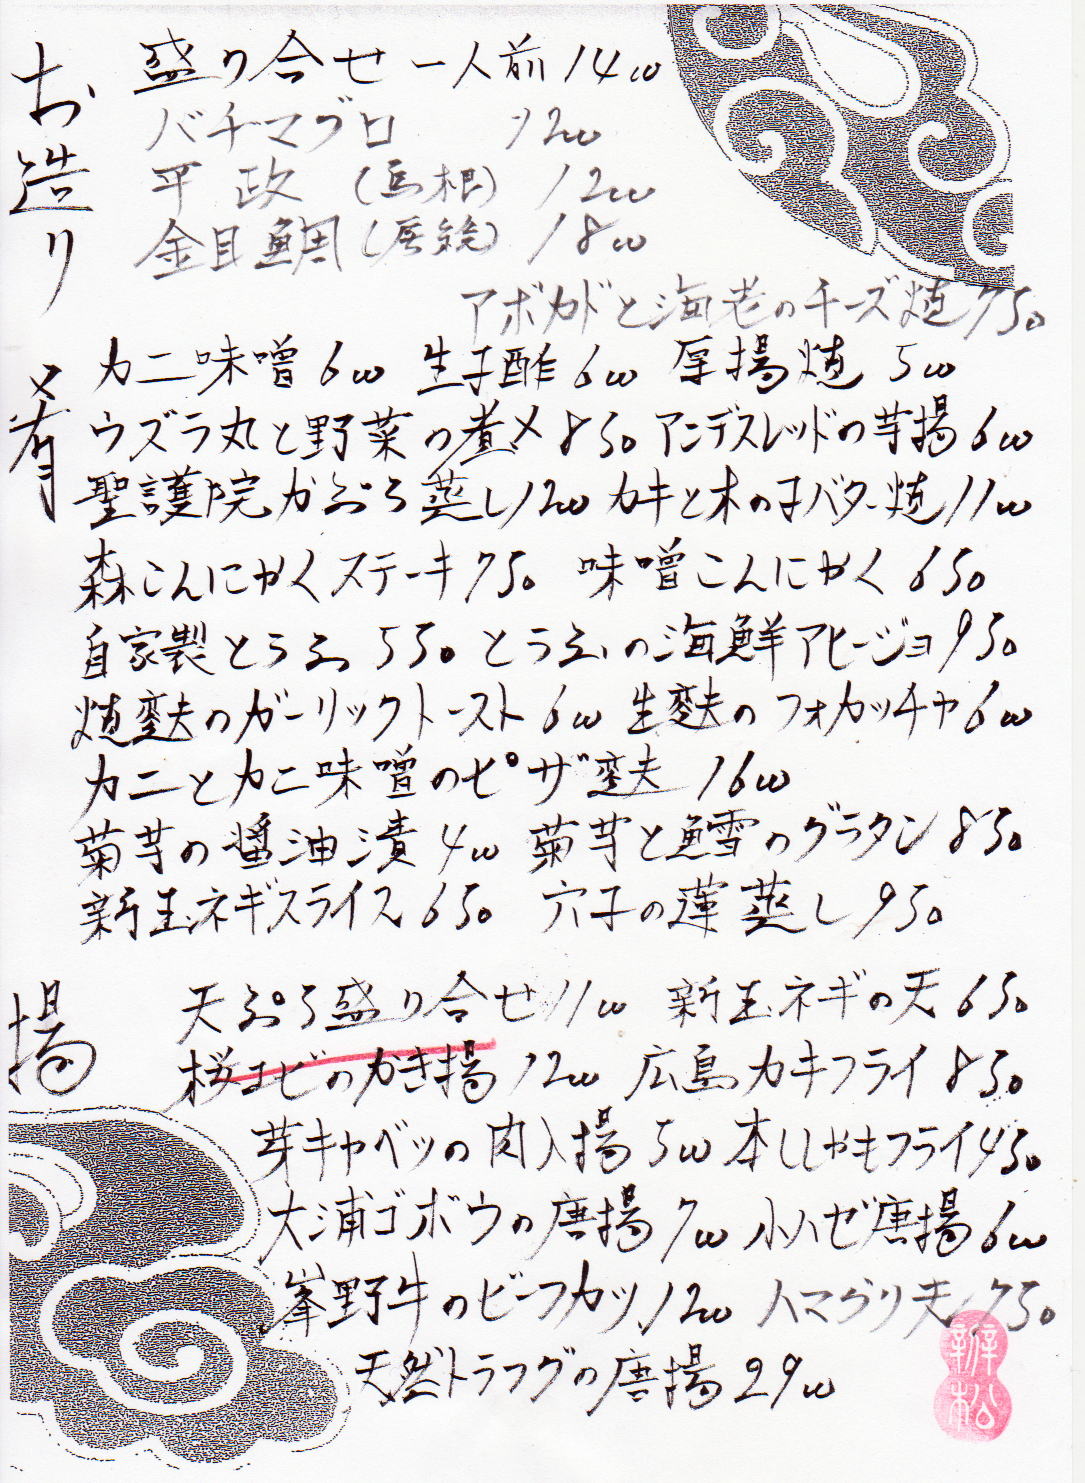 お造り
盛り合せ 一人前 1400
バチマグロ 1200
平政(島根) 1200
金目鯛 1800
アボカドと海老のチーズ焼 750
肴
カニ味噌 600 生子酢 600 厚揚焼 500
ウズラ丸と野菜の煮メ 850 アンデスレッドの芋揚 600
聖護院かぶら蒸し 1200 カキと木の子バター焼 1100
森こんにゃくステーキ 750 味噌こんにゃく 650
自家製とうふ 550 とうふの海鮮アヒージョ 950
焼麩のガーリックトースト 600 生麩のフォカッチャ 600
カニとカニ味噌のピザ麩 1600
菊芋の醤油漬 400 菊芋と鱈のグラタン 850
新玉ネギスライス 650 穴子の蓮蒸し 950
揚
天ぷら盛り合せ 1100 新玉ネギの天 650
桜エビのかき揚 1200 広島カキフライ 850
芽キャベツの肉入揚 500 本ししゃもフライ 450
大浦ゴボウの唐揚 700 小ハゼ唐揚 600
峯野牛のビーフカツ 1200 ハマグリ天 750
天然トラフグの唐揚 2900
辨松